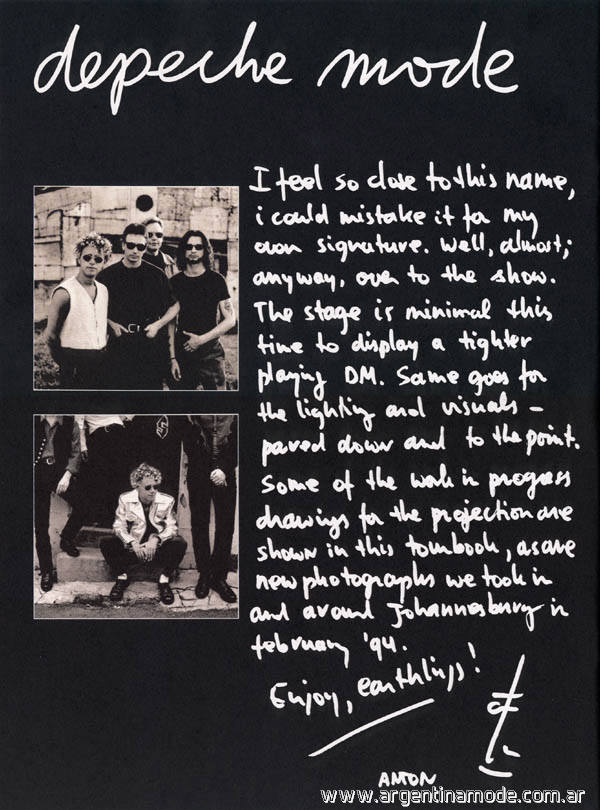 depeche mode
I feel so close to this name,
i could mistake it for my
own signature. Well, almost;
anyway, over to the show.
The stage is minimal this
time to display a tighter
playing DM. Same goes for
the lighting and visuals –
pared down and to the point.
Some of the work in progress
drawings for the projection are
shown in this tourbook, as are
new photographs we took in
and around Johannesburg in
february '94.
Enjoy, earthlings!
ANTON
www.argentinamode.com.ar